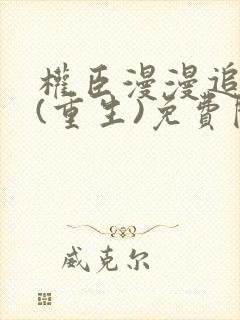 權臣漫漫追
(重生)免費閱
威克尔